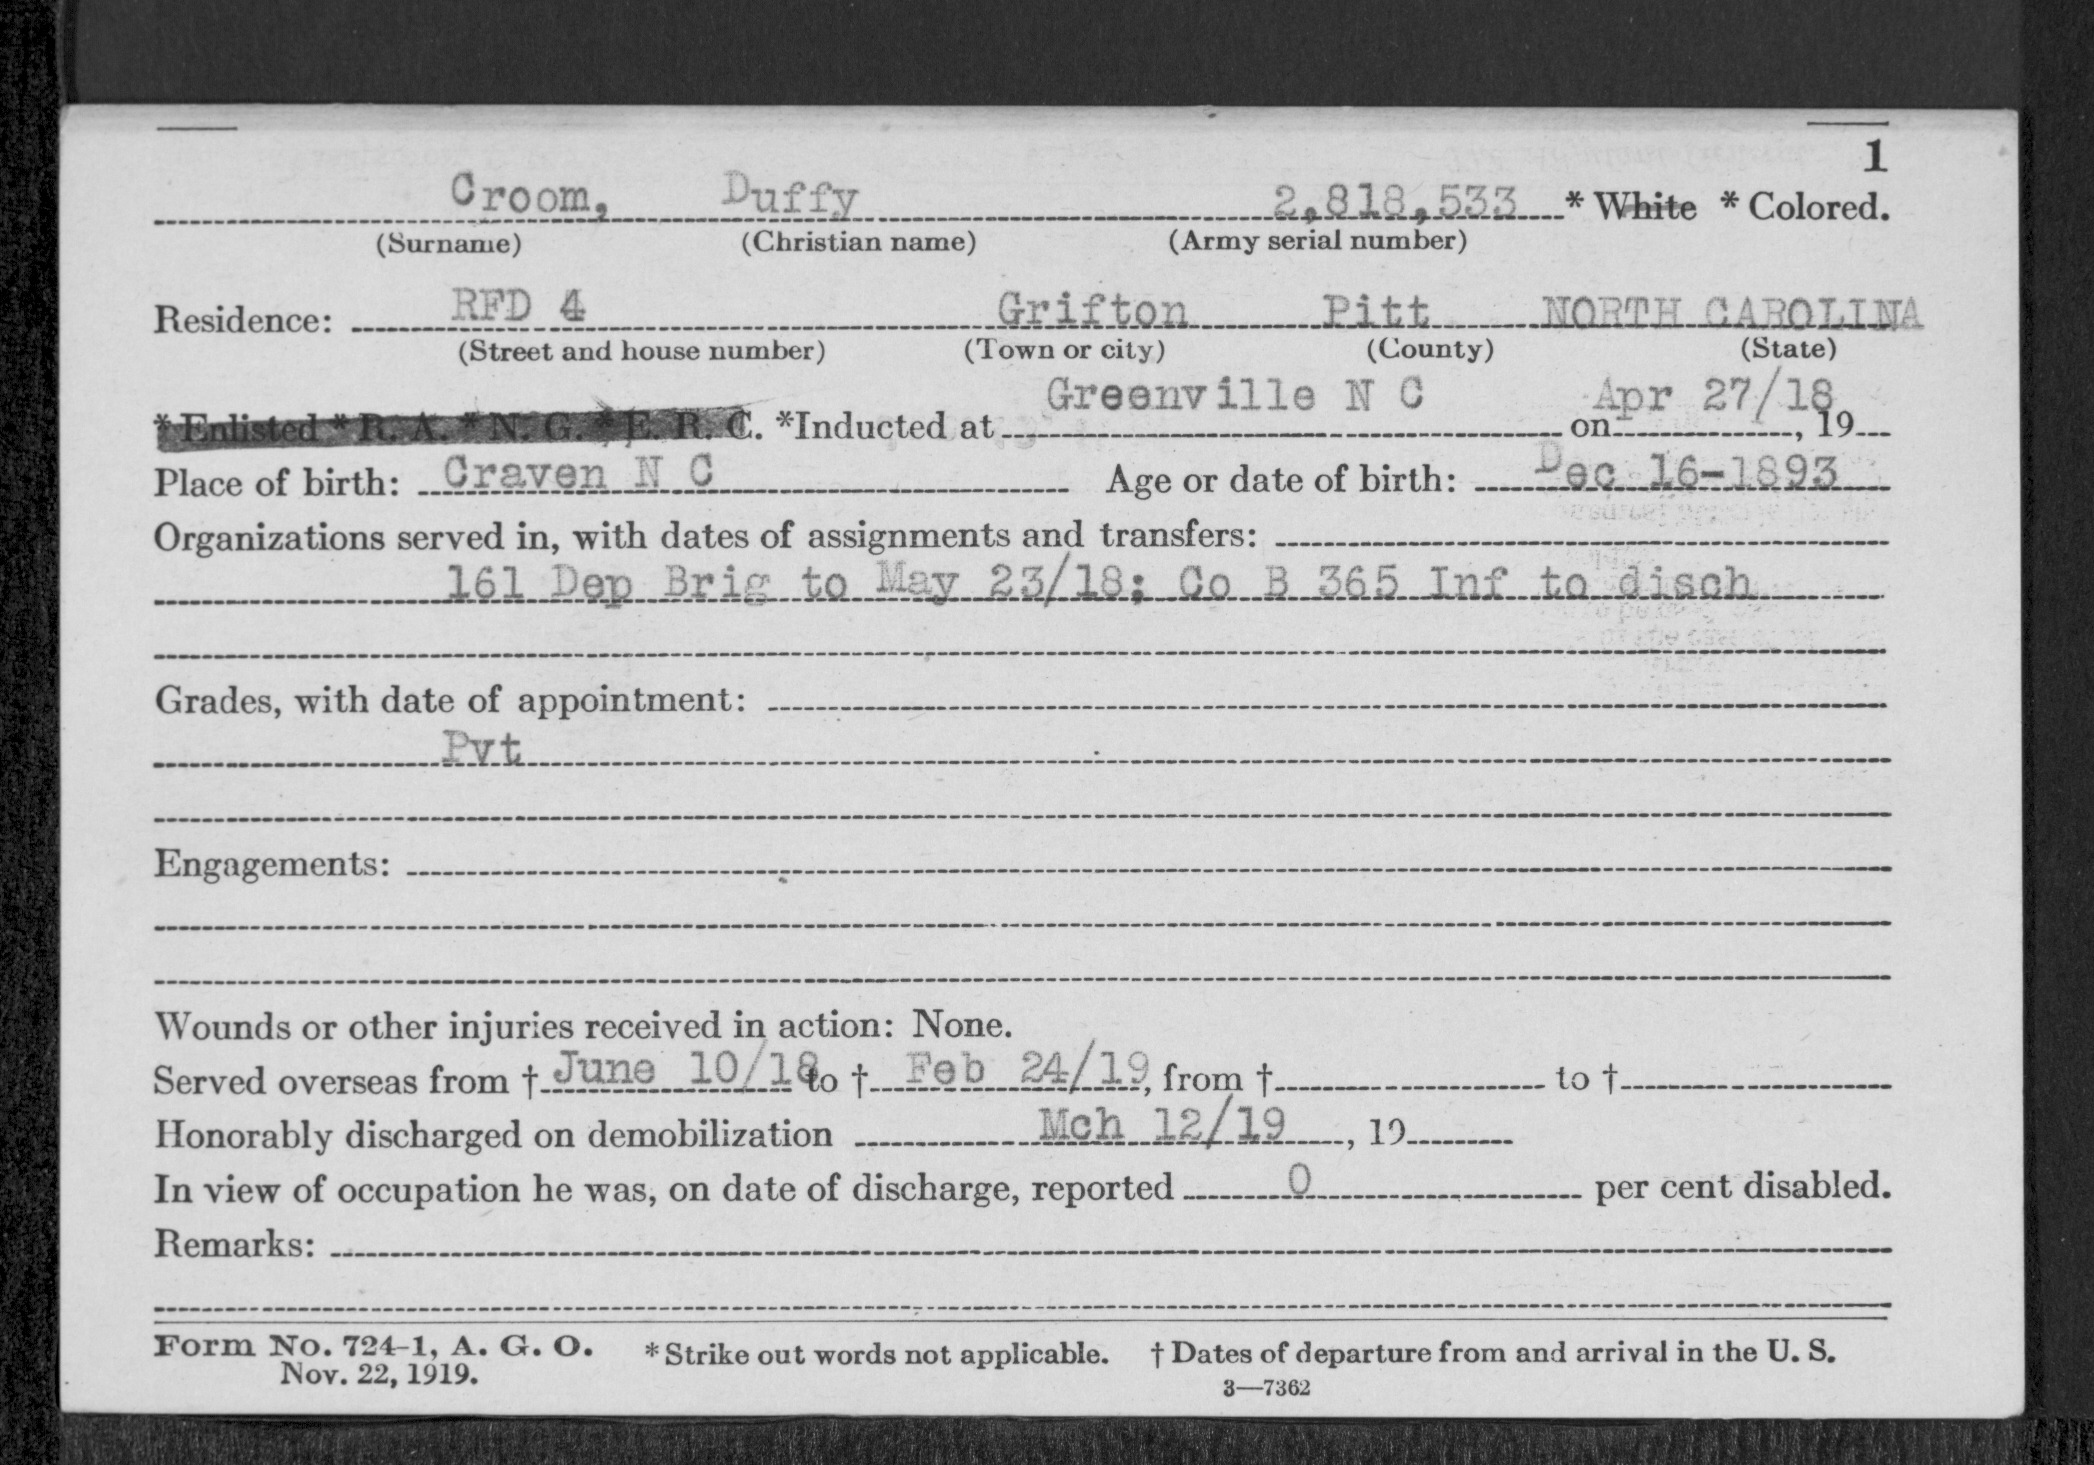 1
Croom, Duffy 2,818,533 * White * Colored.
(Surname) (Christian name) (Army serial number)
Residence: RFD 4 Grifton Pitt NORTH CAROLINA
(Street and house number) (Town or city) (County) (State)
* Enlisted * R. A. * N. G. * E. R. C. *Inducted at Greenville N C on Apr 27/18, 19
Place of birth: Craven N C Age or date of birth: Dec 16-1893
Organizations served in, with dates of assignments and transfers:
161 Dep Brig to May 23/18; Co B 365 Inf to disch
Grades, with date of appointment:
Pvt
Engagements:
Wounds or other injuries received in action: None.
Served overseas from † June 10/18 to † Feb 24/19, from † to †
Honorably discharged on demobilization Mch 12/19, 19
In view of occupation he was, on date of discharge, reported 0 per cent disabled.
Remarks:
Form No. 724-1, A. G. O. * Strike out words not applicable. † Dates of departure from and arrival in the U. S.
Nov. 22, 1919.
3—7362